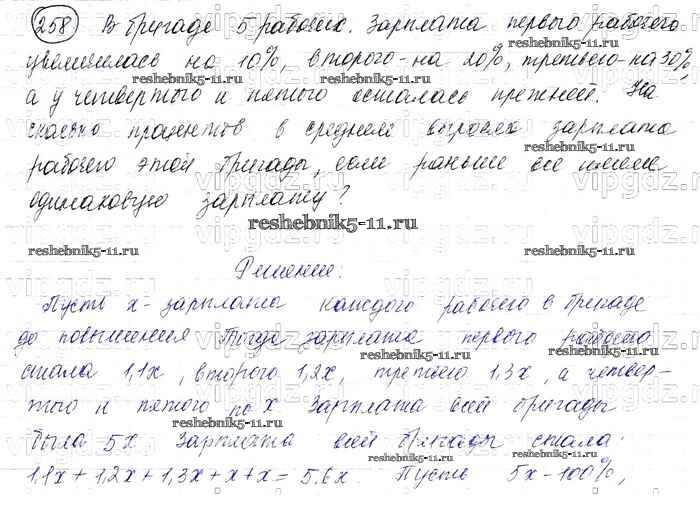 258 В бригаде 5 рабочих. Зарплата первого рабочего
увеличилась на 10%, второго - на 20%, третьего - на 30%,
reshebnik5-11.ru reshebnik5-11.ru
а у четвертого и пятого осталась прежней. На
сколько процентов в среднем выросла зарплата
reshebnik5-11.ru
рабочего этой бригады, если раньше все имели
vipgdz.ru vipgdz.ru vipgdz.ru
одинаковую зарплату?
reshebnik5-11.ru
reshebnik5-11.ru reshebnik5-11.ru
Решение:
Пусть х - зарплата каждого рабочего в бригаде
reshebnik5-11.ru
до повышения Тогда зарплата первого рабочего
reshebnik5-11.ru
стала 1,1х, второго 1,2х, третьего 1,3х, а четвер-
reshebnik5-11.ru
того и пятого по х Зарплата всей бригады
была 5х Зарплата всей бригады стала:
reshebnik5-11.ru
1,1х + 1,2х + 1,3х + х + х = 5.6х. Пусть 5х - 100%,